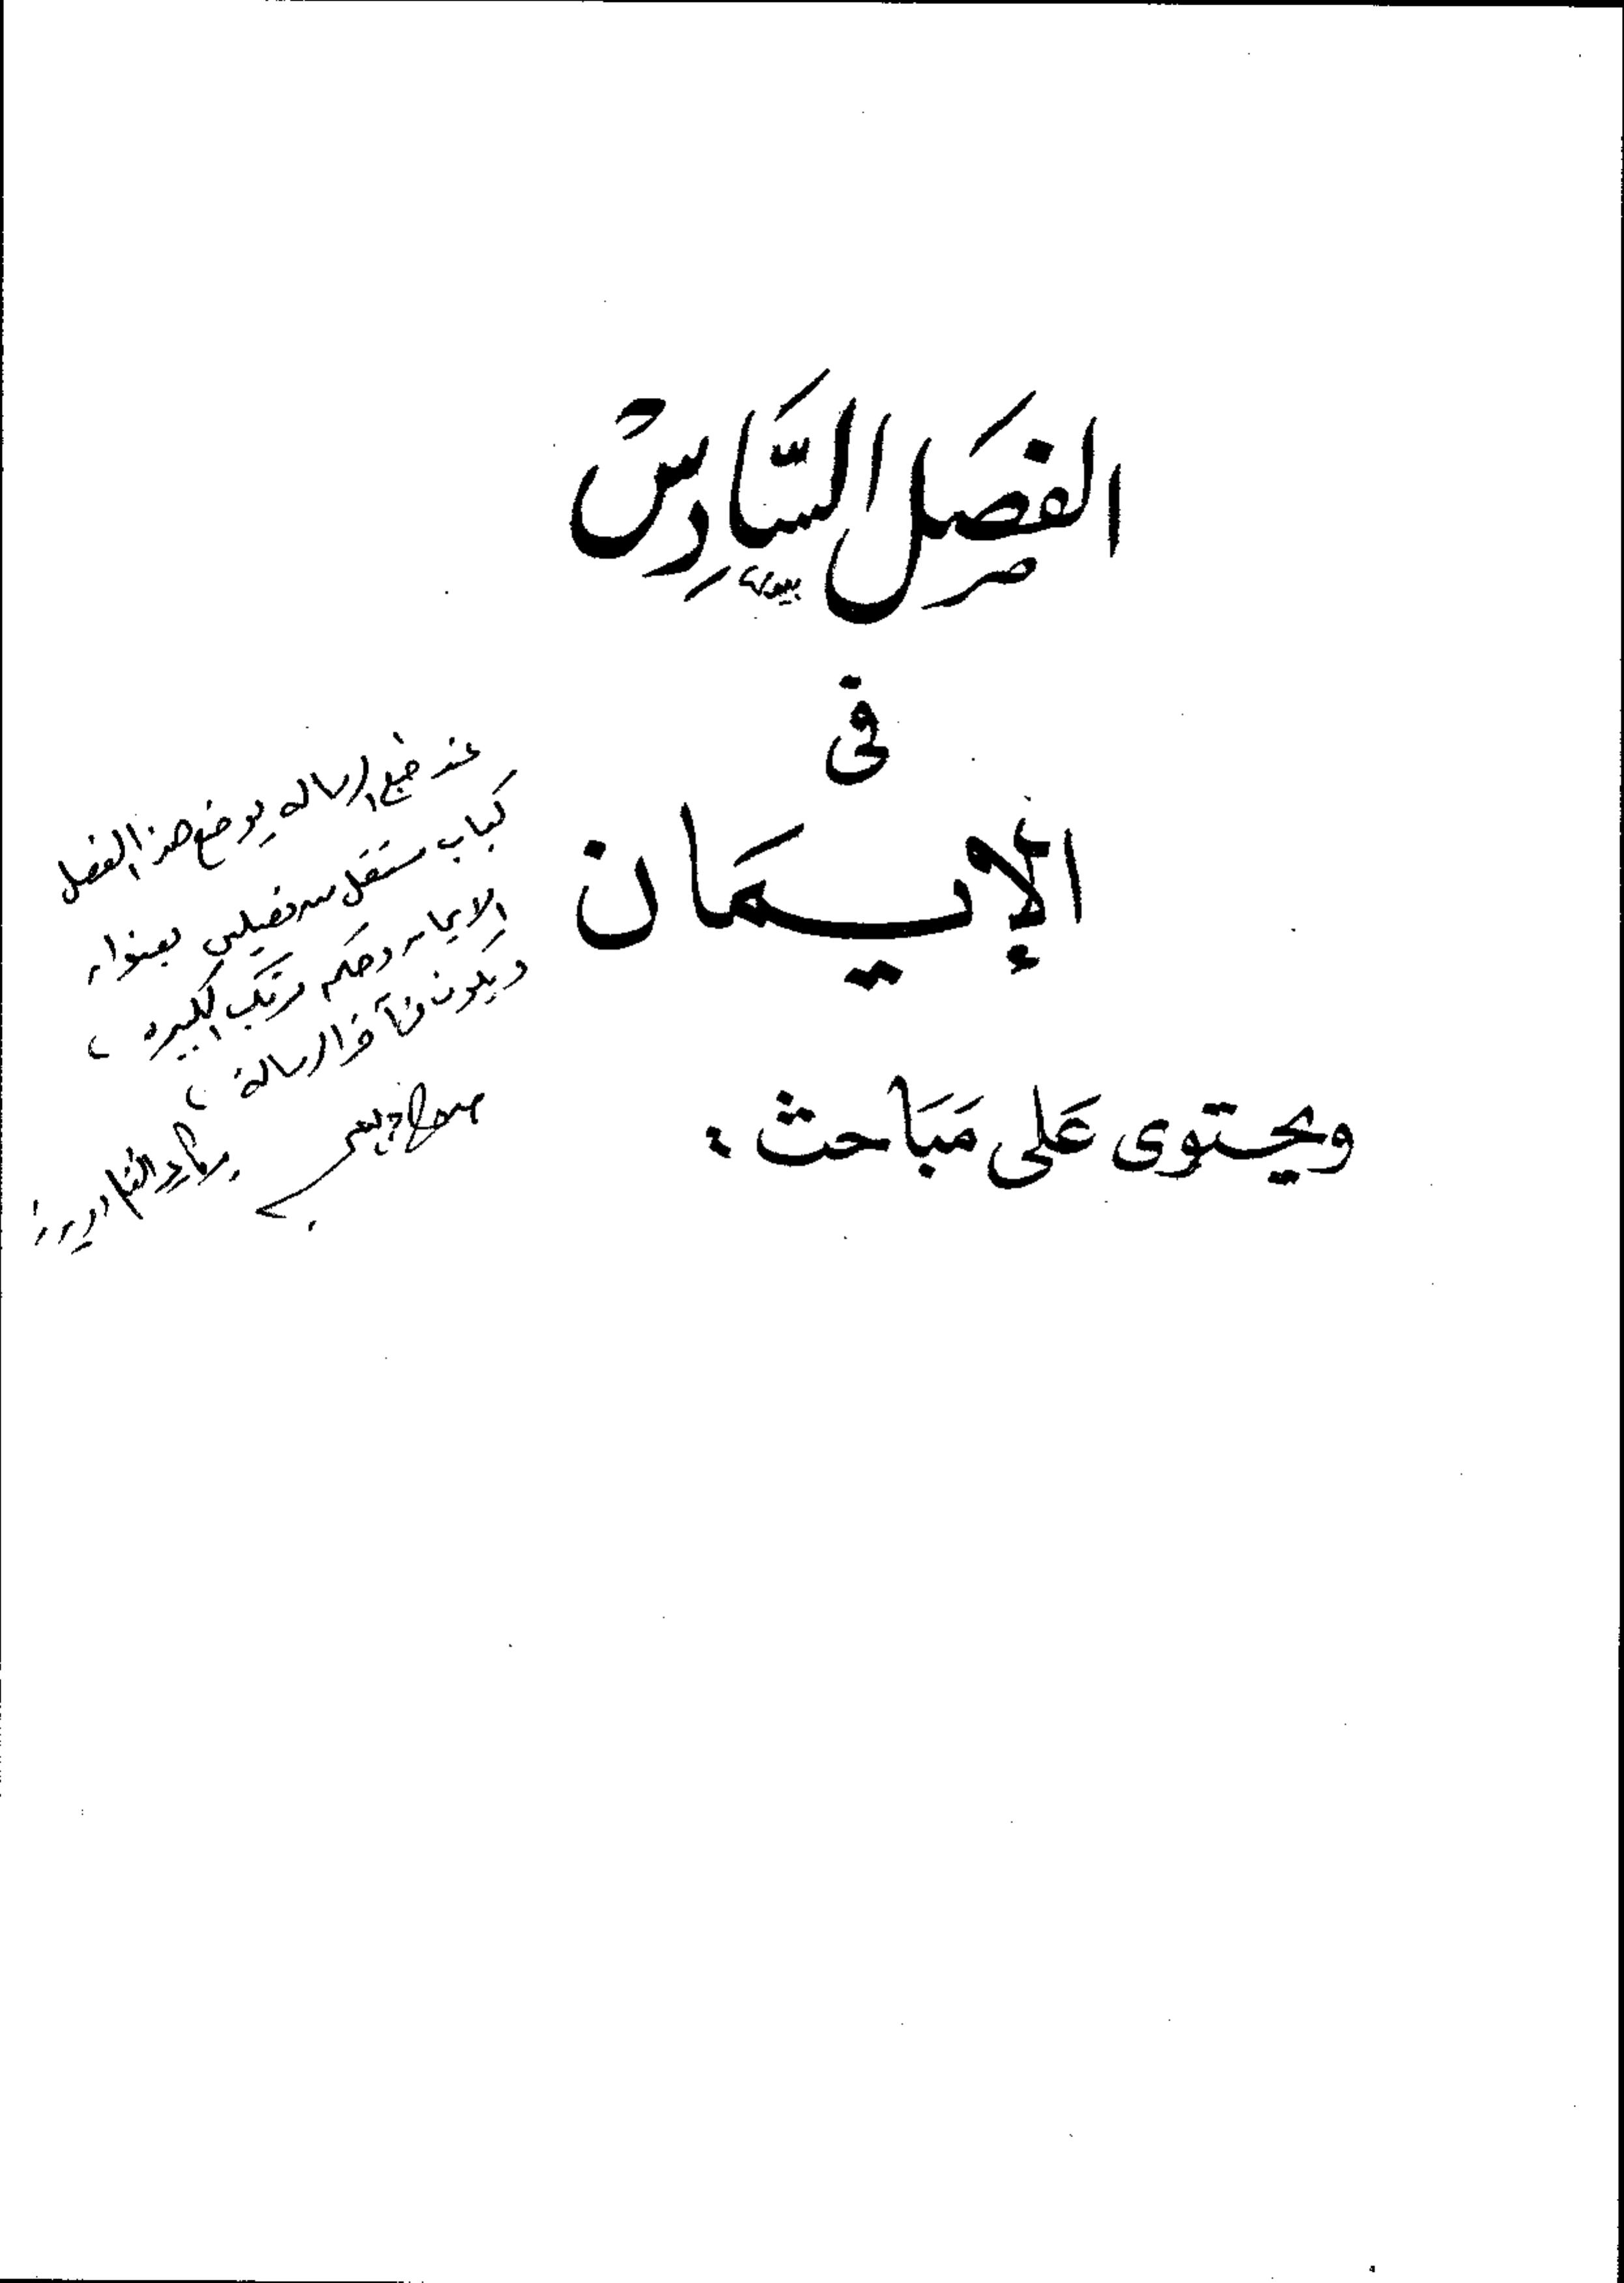 الفَصَل السَّادسْ
فى
الإيـمَان
ويحتوى عَلى مَبَاحث :
عند طبع الرساله يوضع هذا الفصل
كباب مستقل من فصلين بعنوان
الايمان وحكم مرتكب الكبيره ،
ويكون فى آخر الرسالة ،